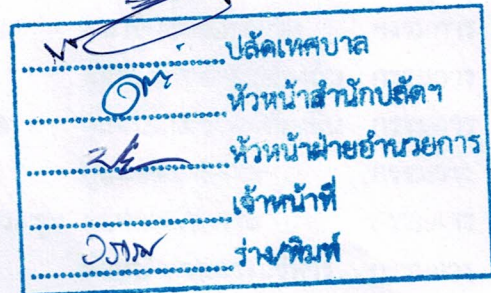 ....................ปลัดเทศบาล
....................หัวหน้าสำนักปลัดฯ
....................หัวหน้าฝ่ายอำนวยการ
....................เจ้าหน้าที่
....................ร่าง/พิมพ์